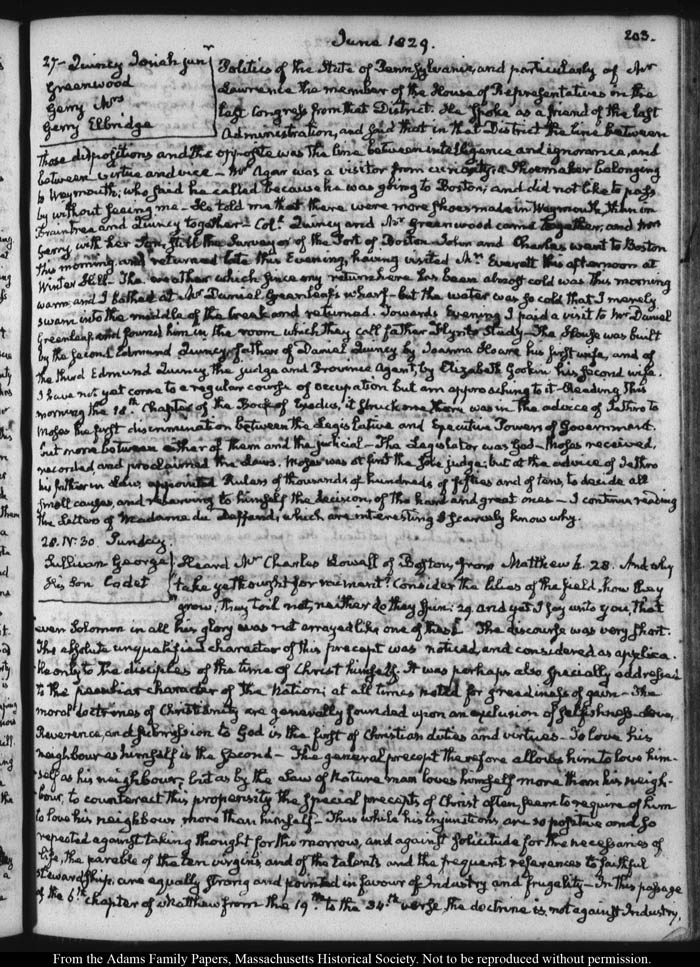 June 1829.
203.
27- Quincy Josiah junr
Greenwood
Gerry Mrs
Gerry Elbridge
Politics of the State of Pennsylvania, and particularly of Mr
Lawrence the member of the House of Representatives in the
last Congress from that District. He spoke as a friend of the last
Administration, and said that in that District the line between
those dispositions and the opposite was the line between intelligence and ignorance, and
between virtue and vice – Mr Agar was a visitor from curiosity, a Shoemaker belonging
to Weymouth; who said he called because he was going to Boston, and did not like to pass
by without seeing me – He told me that there were more shoes made in Weymouth, than in
Braintree and Quincy together – Coll. Quincy and Mr Greenwood came together; and Mrs
Gerry with her Son, still the Surveyor of the Port of Boston – John and Charles went to Boston
this morning, and returned late this Evening, having visited Mr Everett this afternoon at
Winter Hill – The weather which since my return here has been almost cold was this morning
warm and I bathed at Mr Daniel Greenleaf's wharf – but the water was so cold that I merely
swam into the middle of the creek and returned. Towards Evening I paid a visit to Mr Daniel
Greenleaf and found him in the room which they call father Flynt's Study – The House was built
by the second Edmund Quincy, father of Daniel Quincy by Joanna Hoare his first wife, and of
the third Edmund Quincy, the judge and Province Agent, by Elizabeth Gookin his second wife.
I have not yet come to a regular course of occupation but am approaching to it – Reading this
morning the 18th Chapter of the Book of Exodus, it struck me there was in the advice of Jethro to
Moses the first discrimination between the Legislative and Executive Powers of Government.
but none between either of them and the judicial – The Legislator was God – Moses received,
recorded, and proclaimed the Laws. Moses was at first the sole judge; but at the advice of Jethro
his father in Law, appointed Rulers of thousands of hundreds of fifties and of tens, to decide all
small causes, and reserving to himself the decision, of the hard and great ones – I continue reading
the Letters of Madame du Deffand, which are interesting I scarcely know why.
28. IV:30. Sunday.
Sullivan George
His son Cadet
Heard Mr Charles Lowell of Boston, from Matthew 6. 28. And why
take ye thought for raiment? Consider the lilies of the field, how they
grow; they toil not, neither do they spin: 29 and yet I say unto you, that
even Solomon in all his glory was not arrayed like one of these. The discourse was very short.
The absolute unqualified character of this precept was noticed, and considered as applica-
ble only to the disciples of the time of Christ himself. It was perhaps also specially addressed
to the peculiar character of the Nation; at all times noted for greediness of gain – The
moral doctrines of Christianity are generally founded upon an exclusion of selfishness – Love,
Reverence, and submission to God is the first of Christian duties and virtues. To love his
neighbour as himself is the second – The general precept therefore allows him to love him-
self as his neighbour; but as by the Law of Nature man loves himself more than his neigh-
bour, to counteract this propensity the special precepts of Christ often seem to require of him
to love his neighbour more than himself – Thus while his injunctions are so positive and so
repeated against taking thought for the morrow, and against solicitude for the necessaries of
life, the parable of the ten virgins and of the talents and the frequent references to faithful
stewardship, are equally strong and pointed in favour of Industry and frugality – In this passage
of the 6th chapter of Matthew from the 19th to the 34th verse, the doctrine is not against Industry,
From the Adams Family Papers, Massachusetts Historical Society. Not to be reproduced without permission.